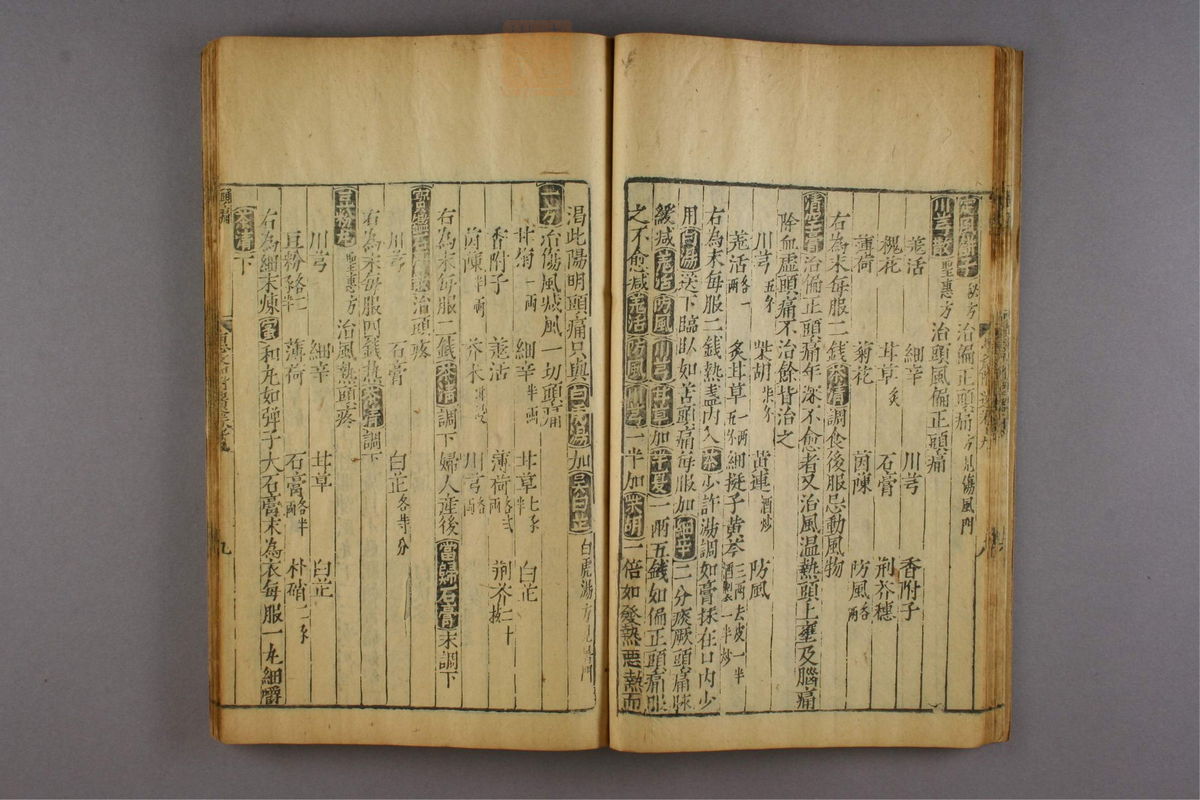 秘方治偏正頭痛方見傷風門
川芎散聖惠方治頭風偏正頭痛
羌活 細辛 川芎 香附子
槐花 甘草炙 石膏 荊芥穗
薄荷 菊花 茵陳 防風各一兩
右為末每服二錢茶清調食後服忌動風物
清空膏治偏正頭痛年深不愈者又治風溫熱頭上壅及腦痛
除血虛頭痛不治餘皆治之
川芎五錢 柴胡七錢 黃連酒炒 防風
羌活各一兩 炙甘草一兩五錢 細挺子黃芩三兩去皮一半酒制一半炒
右為末每服二錢熱盞內入茶少許湯調如膏抹在口內少
用白湯送下臨臥如苦頭痛每服加細辛二分痰厥頭痛脉
緩減羌活防風川芎甘草加半夏一兩五錢如偏正頭痛服
之不愈減羌活防風川芎一半加柴胡一倍如發熱惡熱而
渴此陽明頭痛只與白虎湯加吳白芷白虎湯方見暑門
一方治傷風感風一切頭痛
甘菊一兩 細辛半兩 甘草七錢 白芷
香附子 羌活 薄荷各弍兩 荊芥二十
茵陳半兩 川芎各兩
右為末每服二錢茶清調下婦人產後當歸石膏末調下
治頭疼
川芎 石膏 白芷各等分
右為末每服四錢熱茶清調下
豆粉丸聖惠方治風熱頭疼
川芎 細辛 甘草 白芷
豆粉 薄荷 石膏各半兩 朴硝二錢
右為細末煉蜜和丸如彈子大石膏末為衣每服一丸細嚼
茶清下
頭痛
九